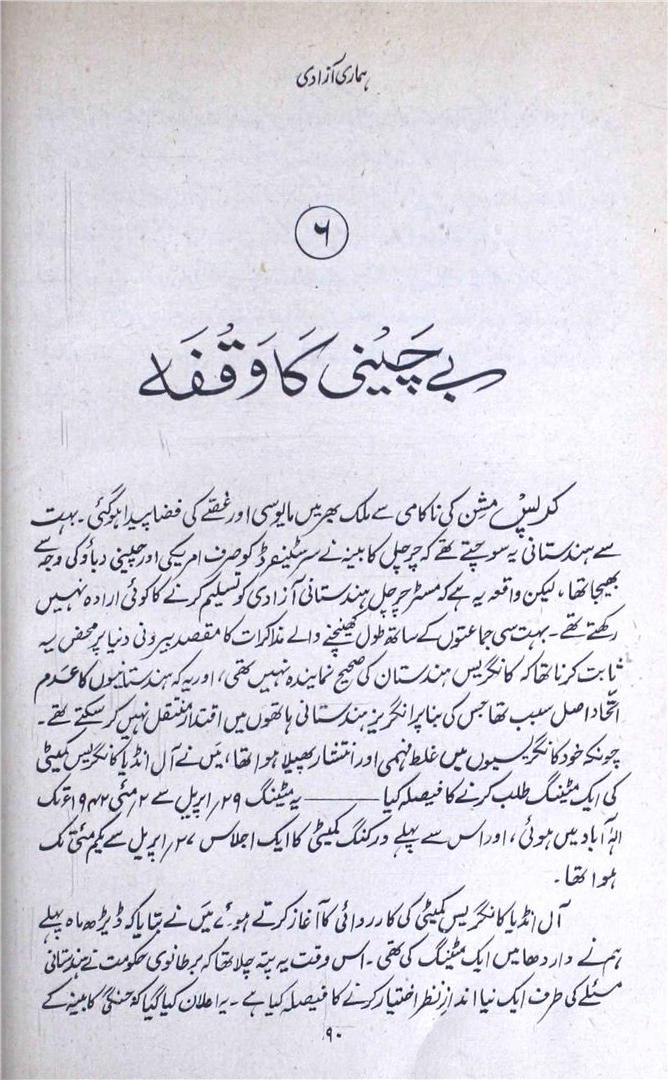 ہماری آزادی
۶
بے چَینی کَا وَقُفَہ
کرپس مشن کی ناکامی سے ملک بھر میں مایوسی اور غصّے کی فضا پیدا ہوگئی ۔ بہت
سے ہندستانی یہ سوچتے تھے کہ چرچل کابینہ نے سر سٹیفرڈ کو صرف امریکی اور چینی دباؤ کی وجہ سے
بھیجا تھا ، لیکن واقعہ یہ ہے کہ مسٹر چرچل ہندستانی آزادی کو تسلیم کرنے کا کوئی ارادہ نہیں
رکھتے تھے ۔ بہت سی جماعتوں کے ساتھ طول کھینچنے والے مذاکرات کا مقصد بیرونی دنیا پر محض یہ
ثابت کرنا تھا کہ کانگریس ہندستان کی صحیح نمایندہ نہیں تھی ، اور یہ کہ ہندستانیوں کا عَدم
اتّحاد اصل سبب تھا جس کی بنا پر انگریز ہندستانی ہاتھوں میں اقتدار منتقل نہیں کر سکتے تھے ۔
چونکہ خود کانگریسیوں میں غلط فہمی اور انتشار پھیلا ہوا تھا ، میں نے آل انڈیا کانگریس کمیٹی
کی ایک مٹینگ طلب کرنے کا فیصلہ کیا ——— یہ مٹینگ ۲۹؍ اپریل سے ۲؍مئی ۱۹۴۲ء تک
الہٰ آباد میں ہوئی ، اور اس سے پہلے ورکنگ کمیٹی کا ایک اجلاس ۲۷؍ اپریل سے یکم مئی تک
ہوا تھا ۔
آل انڈیا کانگریس کمیٹی کی کارروائی کا آغاز کرتے ہوئے میں نے بتایا کہ ڈیڑھ ماہ پہلے
ہم نے واردھا میں ایک مٹینگ کی تھی ۔ اس وقت یہ پتہ چلا تھا کہ برطانوی حکومت نے ہندستانی
مسئلے کی طرف ایک نیا اندازِ نظر اختیار کرنے کا فیصلہ کیا ہے ۔ یہ اعلان کیا گیا کہ جنگی کابینہ کے
۹۰